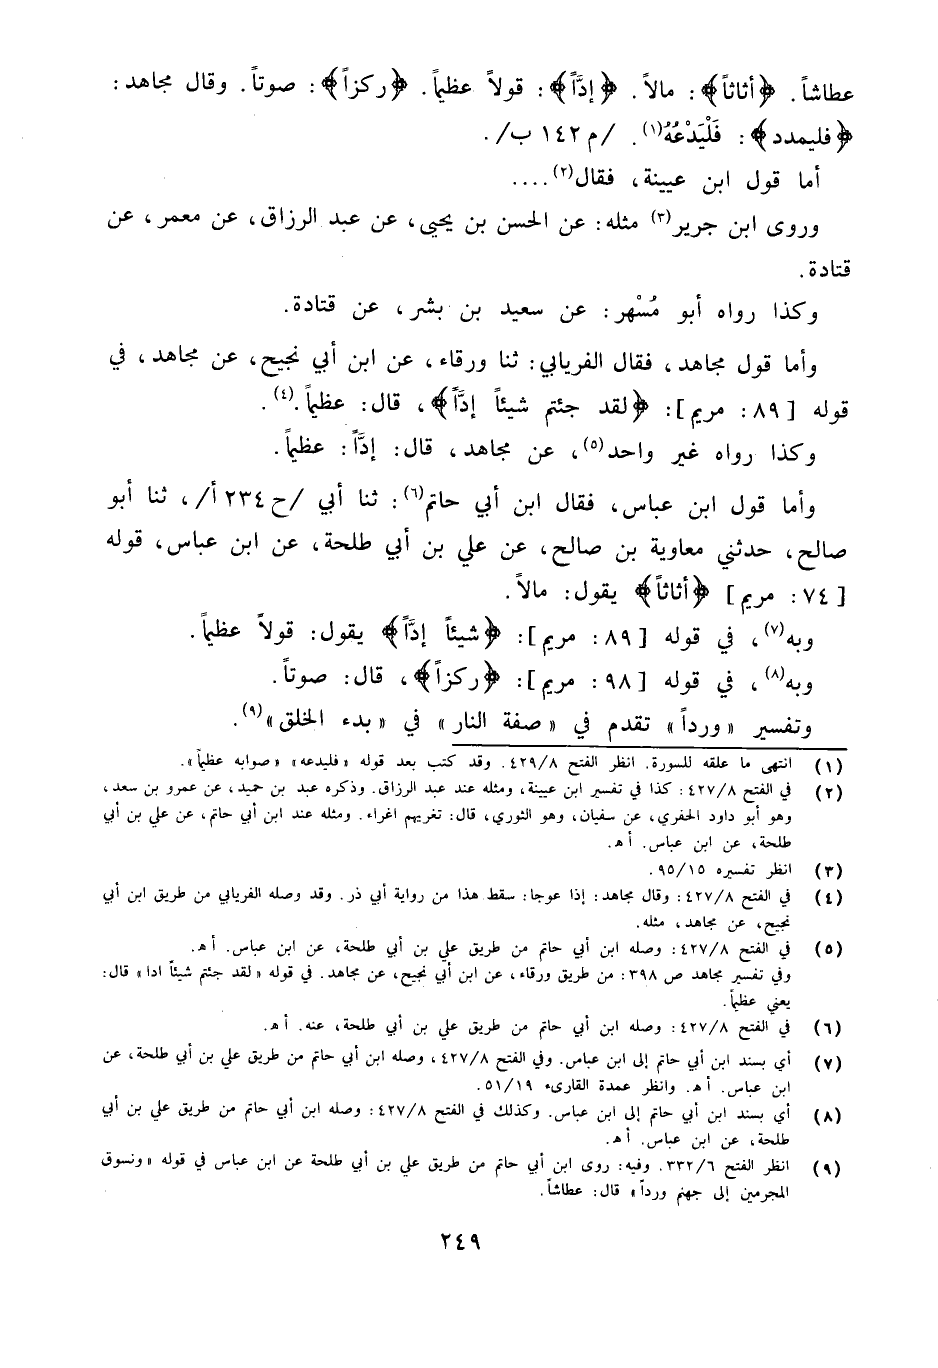 عطاشاً. ﴿أثاثاً﴾: مالاً. ﴿إدَّاً﴾: قولاً عظيماً. ﴿ركزاً﴾: صوتاً. وقال مجاهد:
﴿فليمدد﴾: فَلْيَدْعُهُ(١). /م ١٤٢ ب/.
أما قول ابن عيينة، فقال(٢)....
وروى ابن جرير(٣) مثله: عن الحسن بن يحيى، عن عبد الرزاق، عن معمر، عن
قتادة.
وكذا رواه أبو مُسْهر: عن سعيد بن بشر، عن قتادة.
وأما قول مجاهد، فقال الفريابي: ثنا ورقاء، عن ابن أبي نجيح، عن مجاهد، في
قوله [٨٩: مريم]: ﴿لقد جئتم شيئاً إدَّاً﴾، قال: عظيماً.(٤).
وكذا رواه غير واحد(٥)، عن مجاهد، قال: إدَّاً: عظيماً.
وأما قول ابن عباس، فقال ابن أبي حاتم(٦): ثنا أبي /ح ٢٣٤ أ/، ثنا أبو
صالح، حدثني معاوية بن صالح، عن علي بن أبي طلحة، عن ابن عباس، قوله
[٧٤: مريم] ﴿أثاثاً﴾ يقول: مالاً.
وبه(٧)، في قوله [٨٩: مريم]: ﴿شيئاً إدَّاً﴾ يقول: قولاً عظيماً.
وبه(٨)، في قوله [٩٨: مريم]: ﴿ركزاً﴾، قال: صوتاً.
وتفسير «ورداً» تقدم في «صفة النار» في «بدء الخلق»(٩).
(١) انتهى ما علقه للسورة. انظر الفتح ٤٢٩/٨. وقد كتب بعد قوله «فليدعه» «صوابه عظيماً».
(٢) في الفتح ٤٢٧/٨: كذا في تفسير ابن عيينة، ومثله عند عبد الرزاق. وذكره عبد بن حميد، عن عمرو بن سعد،
وهو أبو داود الحفري، عن سفيان، وهو الثوري، قال: تغريهم اغراء. ومثله عند ابن أبي حاتم، عن علي بن أبي
طلحة، عن ابن عباس. أ ه‍.
(٣) انظر تفسيره ٩٥/١٥.
(٤) في الفتح ٤٢٧/٨: وقال مجاهد: إذا عوجا: سقط هذا من رواية أبي ذر. وقد وصله الفريابي من طريق ابن أبي
نجيح، عن مجاهد، مثله.
(٥) في الفتح ٤٢٧/٨: وصله ابن أبي حاتم من طريق علي بن أبي طلحة، عن ابن عباس. أ ه‍.
وفي تفسير مجاهد ص ٣٩٨: من طريق ورقاء، عن ابن أبي نجيح، عن مجاهد. في قوله «لقد جئتم شيئاً ادا» قال:
يعني عظيماً.
(٦) في الفتح ٤٢٧/٨: وصله ابن أبي حاتم من طريق علي بن أبي طلحة، عنه. أ ه‍.
(٧) أي بسند ابن أبي حاتم إلى ابن عباس. وفي الفتح ٤٢٧/٨، وصله ابن أبي حاتم من طريق علي بن أبي طلحة، عن
ابن عباس. أ ه‍. وانظر عمدة القارىء ٥١/١٩.
(٨) أي بسند ابن أبي حاتم إلى ابن عباس. وكذلك في الفتح ٤٢٧/٨: وصله ابن أبي حاتم من طريق علي بن أبي
طلحة، عن ابن عباس. أ ه‍.
(٩) انظر الفتح ٣٣٢/٦. وفيه: روى ابن أبي حاتم من طريق علي بن أبي طلحة عن ابن عباس في قوله «ونسوق
المجرمين إلى جهنم ورداً» قال: عطاشاً.
٢٤٩